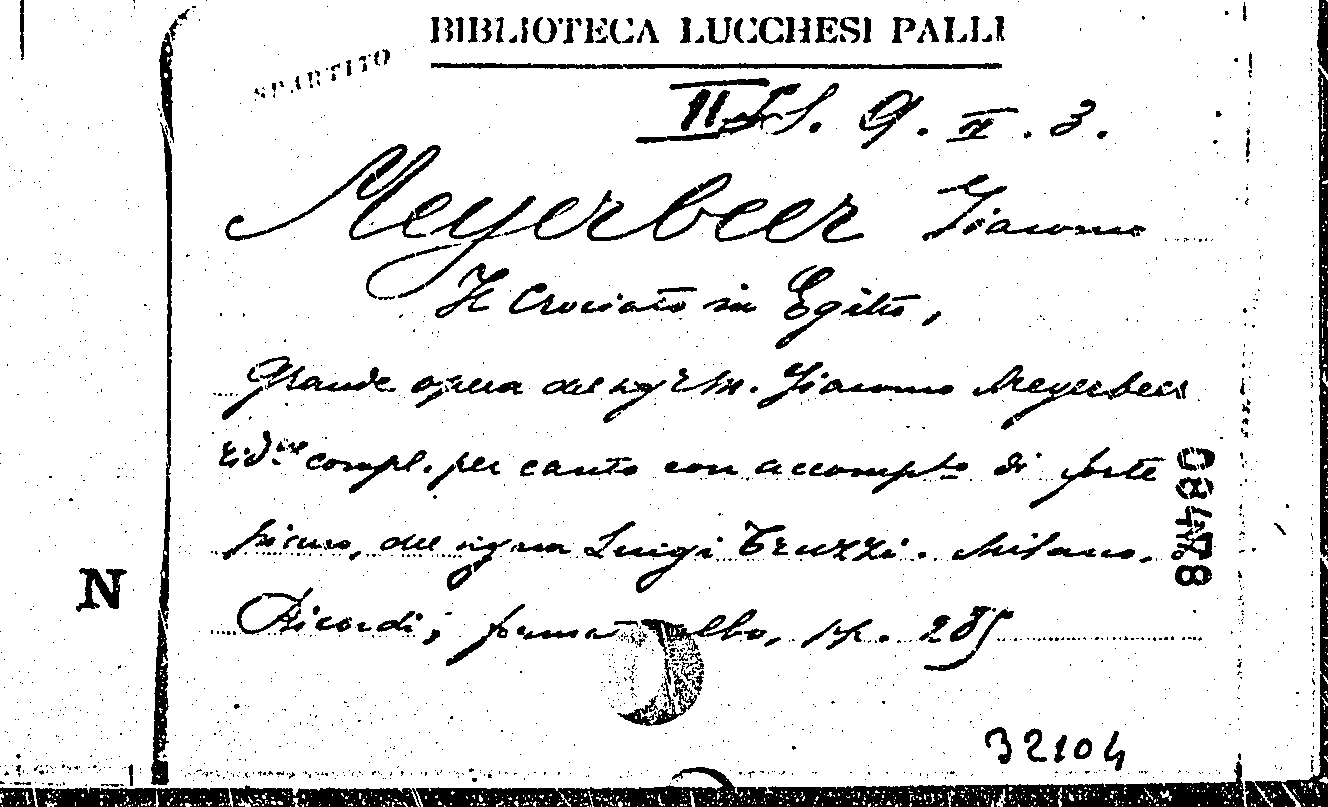 BIBLIOTECA LUCCHESI PALLI
SPARTITO
II SS. 9. II. 3.
Meyerbeer Giacomo
Il Crociato in Egitto,
Grande opera del sigr M. Giacomo Meyerbeer
compl. per canto con accompto di forte
piano, del signor Luigi Truzzi. Milano,
Ricordi; albo, pp. 285
32104
N
08478